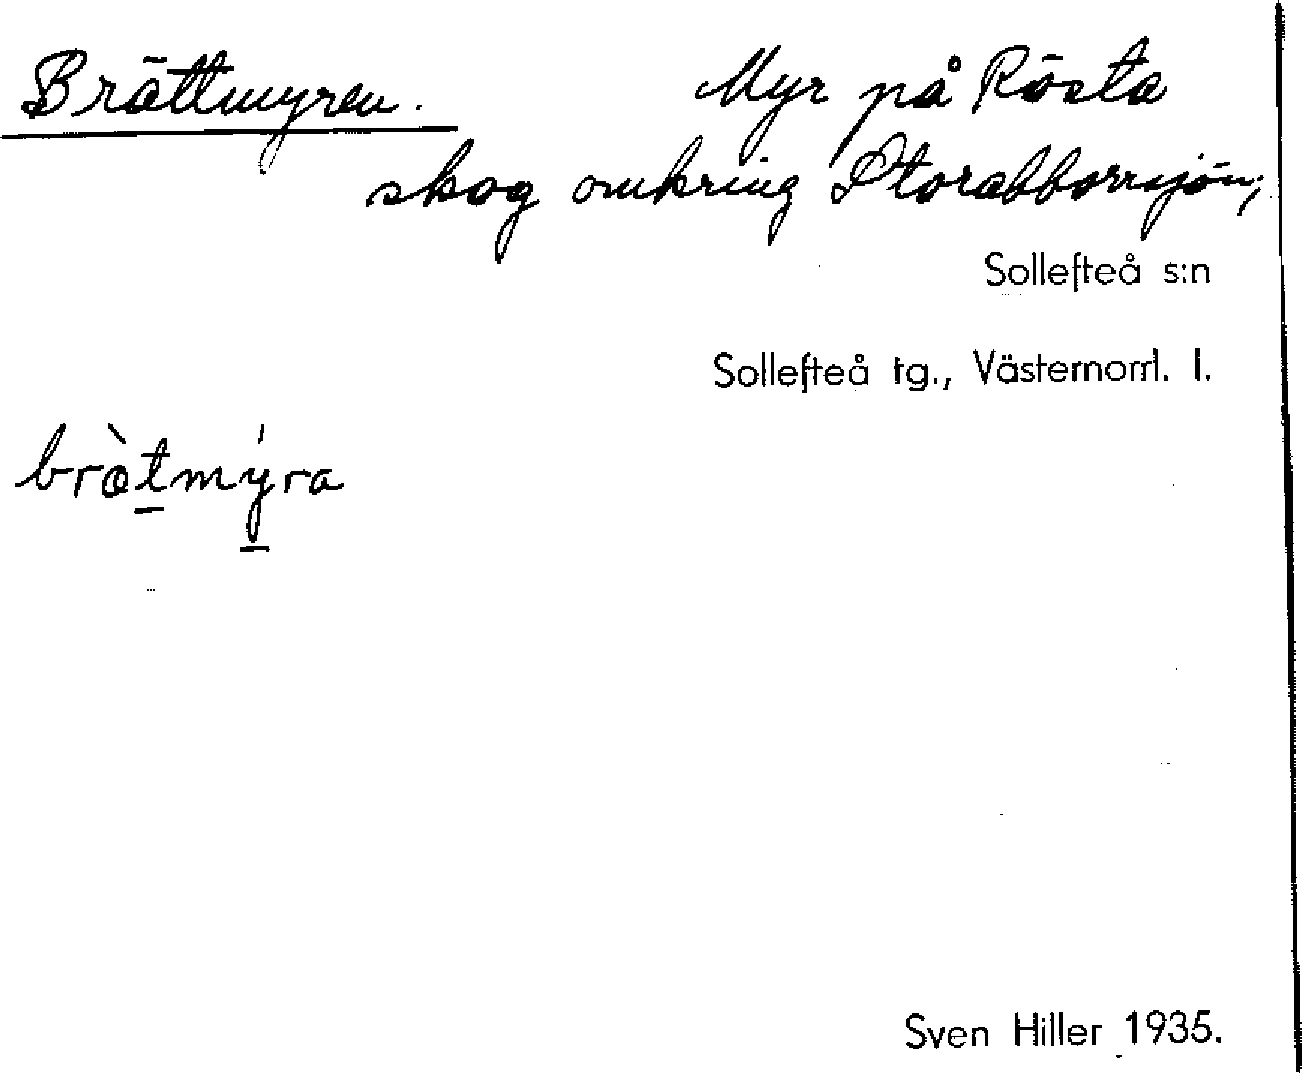 Brättmyren. Myr på Rösta
skog omkring Storabborrsjön,
Sollefteå s:n
Sollefteå tg., Västernorrl. l.
bràtmýra
Sven Hiller 1935.